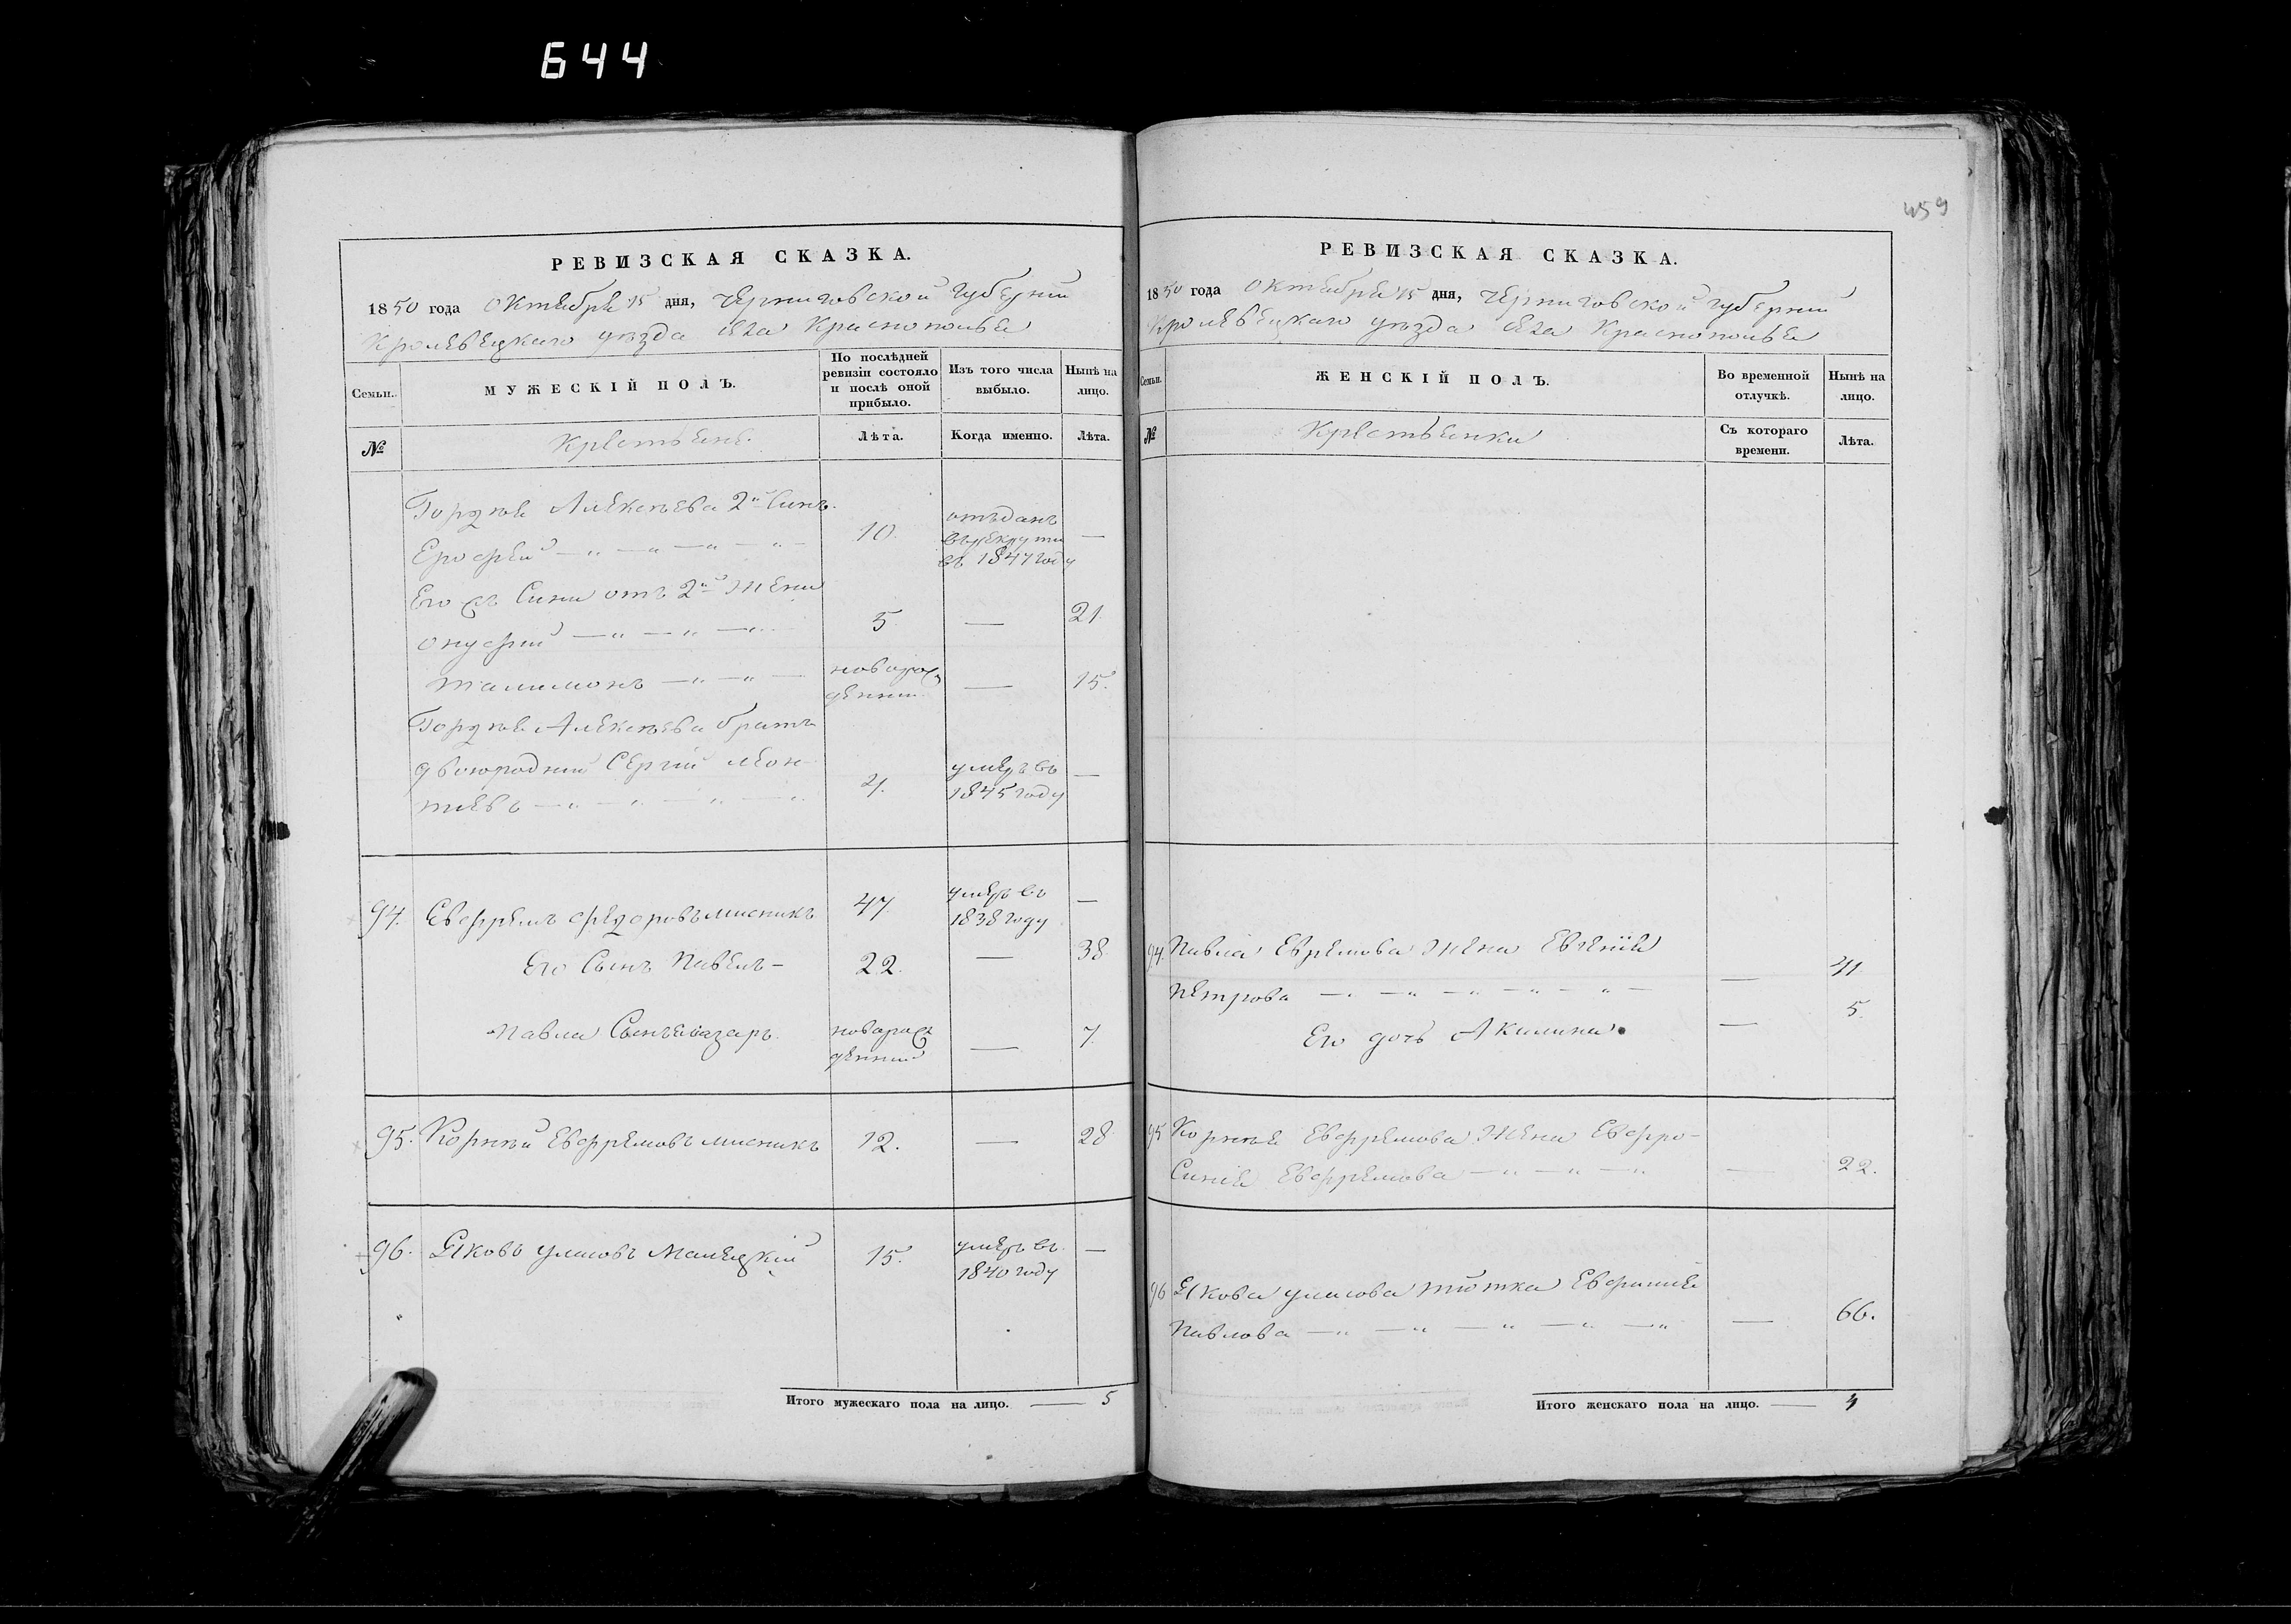 644
459
РЕВИЗСКАЯ СКАЗКА.
1850 года Октября 15 дня, Черниговской Губернии
Кролевецкаго уезда села Краснополья
Семьи.
МУЖЕСКІЙ ПОЛЪ.
По послѣдней ревизіи состояло и послѣ оной прибыло.
Изъ того числа выбыло.
Нынѣ на лицо.
№
Крестьяне.
Лѣта.
Когда именно.
Лѣта.
Гордѣя Алексѣева 2й Синъ
Ерофей — 10. отъданъ
въ рекруты
въ 1847 году —
Его жъ Сини отъ 2й Жени
Онуфрій — 5. — 21
Талимонъ — новорож
денни — 15.
Гордѣя Алексѣева братъ
двоюродний Сергій Леон
тіевъ — 21. умеръ въ
1845 году —
94. Евфремъ Федоровъ Мисникъ 47 умеръ въ
1838 году —
Его Сынъ Павелъ — 22. — 38
Павла Сынъ Елазаръ новорож
денний — 7.
95. Корнѣй Евфремовъ Мисникъ 12. — 28
96. Яковъ Улисовъ Малецкій 15. умеръ въ
1840 году —
Итого мужескаго пола на лицо. — 5
РЕВИЗСКАЯ СКАЗКА.
1850 года Октября 15 дня, Черниговской Губернии
Кролевецкаго уезда села Краснополья
Семьи.
ЖЕНСКІЙ ПОЛЪ.
Во временной отлучкѣ.
Нынѣ на лицо.
№
Крестьянки
Съ котораго времени.
Лѣта.
94. Павла Евремова Жена Евгенія
Петрова — — 41
Его дочь Акилина — 5.
95 Корнѣя Евфремова Жена Евфро-
Синія Евфремова — — 22.
96 Якова Улисова тіотка Евфимія
Павлова — — 66.
Итого женскаго пола на лицо. — 4